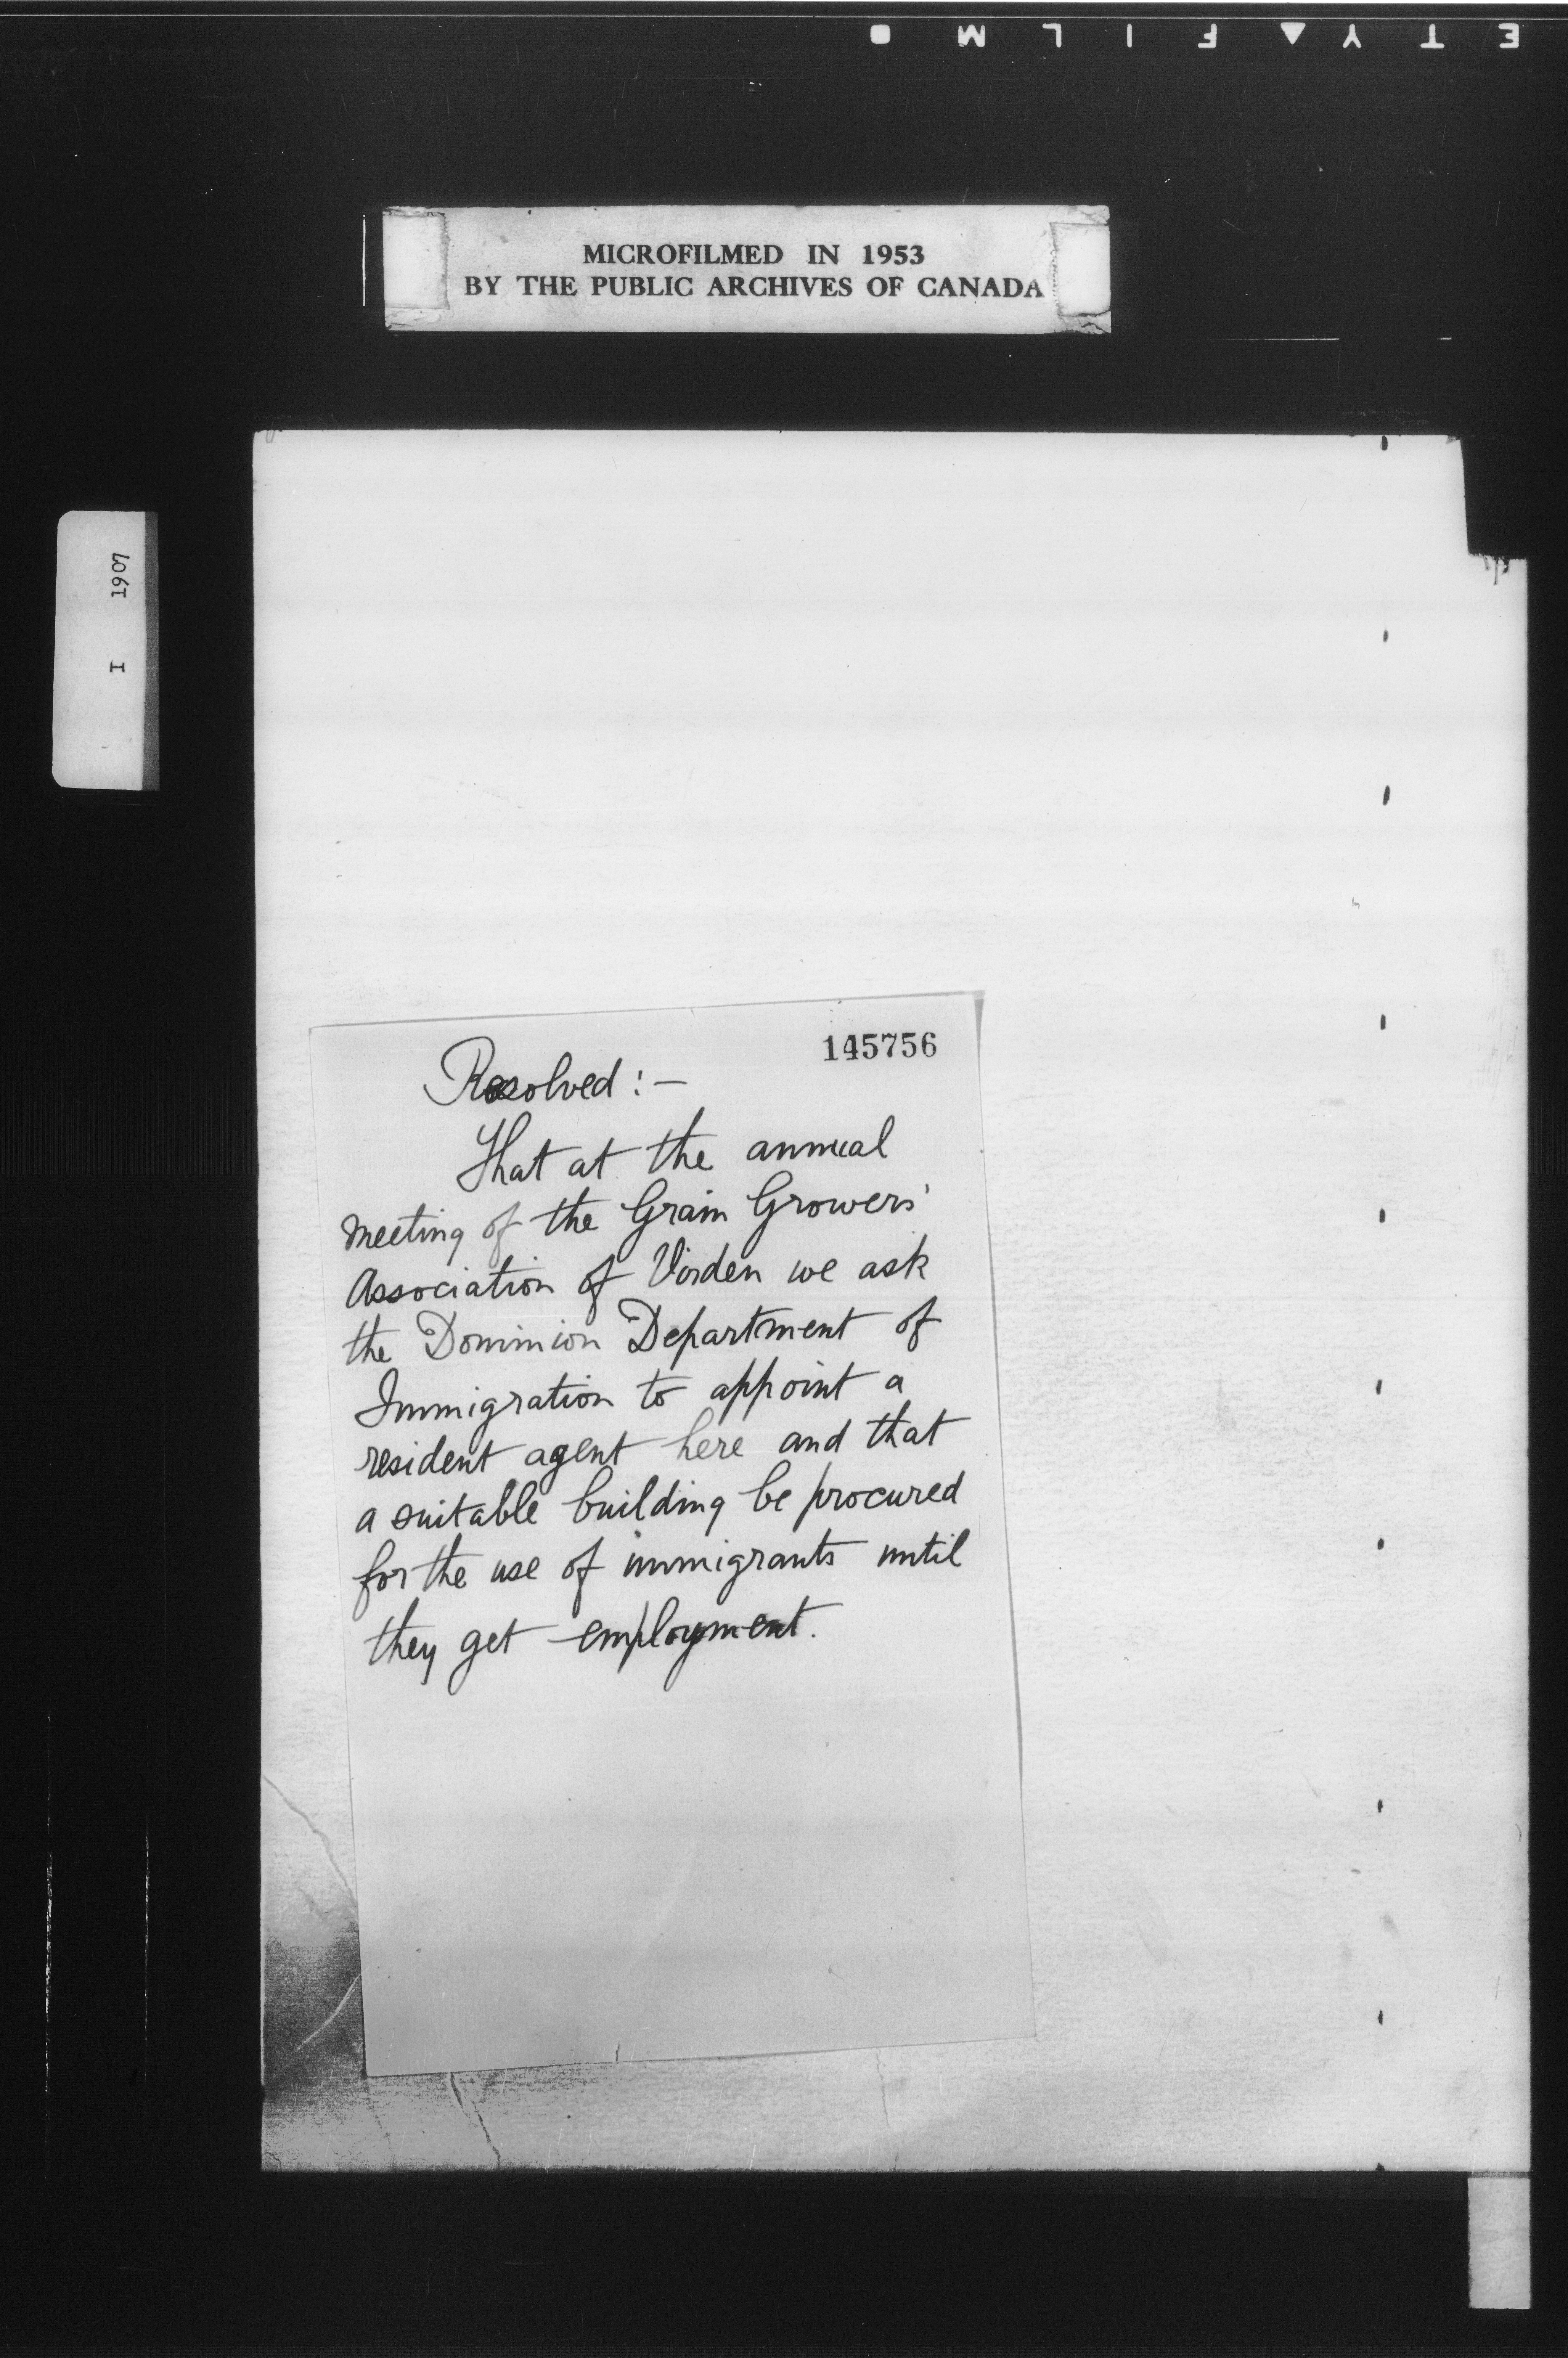 ETY▲FILM ●
MICROFILMED IN 1953
BY THE PUBLIC ARCHIVES OF CANADA
I 1907
145756
Resolved:—
That at the annual
meeting of the Grain Growers'
Association of Virden we ask
the Dominion Department of
Immigration to appoint a
resident agent here and that
a suitable building be procured
for the use of immigrants until
they get employment.